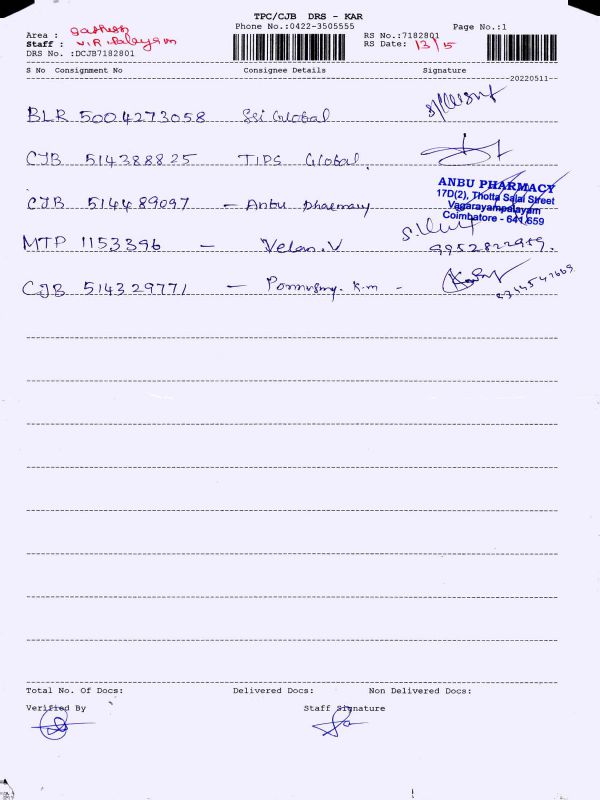 TPC/CJB DRS - KAR
Phone No.:0422-3505555
Page No.:1
Area : Sathish
Staff : V.R. Palayam
DRS No. :DCJB7182801
RS No.:7182801
RS Date: 13/5
S No Consignment No Consignee Details Signature
20220511
BLR 5004273058 Sri Global
CJB 514388825 TIPS Global.
CJB 514489097 - Anbu pharmacy
ANBU PHARMACY
17D(2), Thotta Salai Street
Vagarayampalayam
Coimbatore - 641 659
MTP 1153396 - Velan.V
CJB 514329771 - Ponnusmy. K.m -
Total No. Of Docs: Delivered Docs: Non Delivered Docs:
Verified By Staff Signature